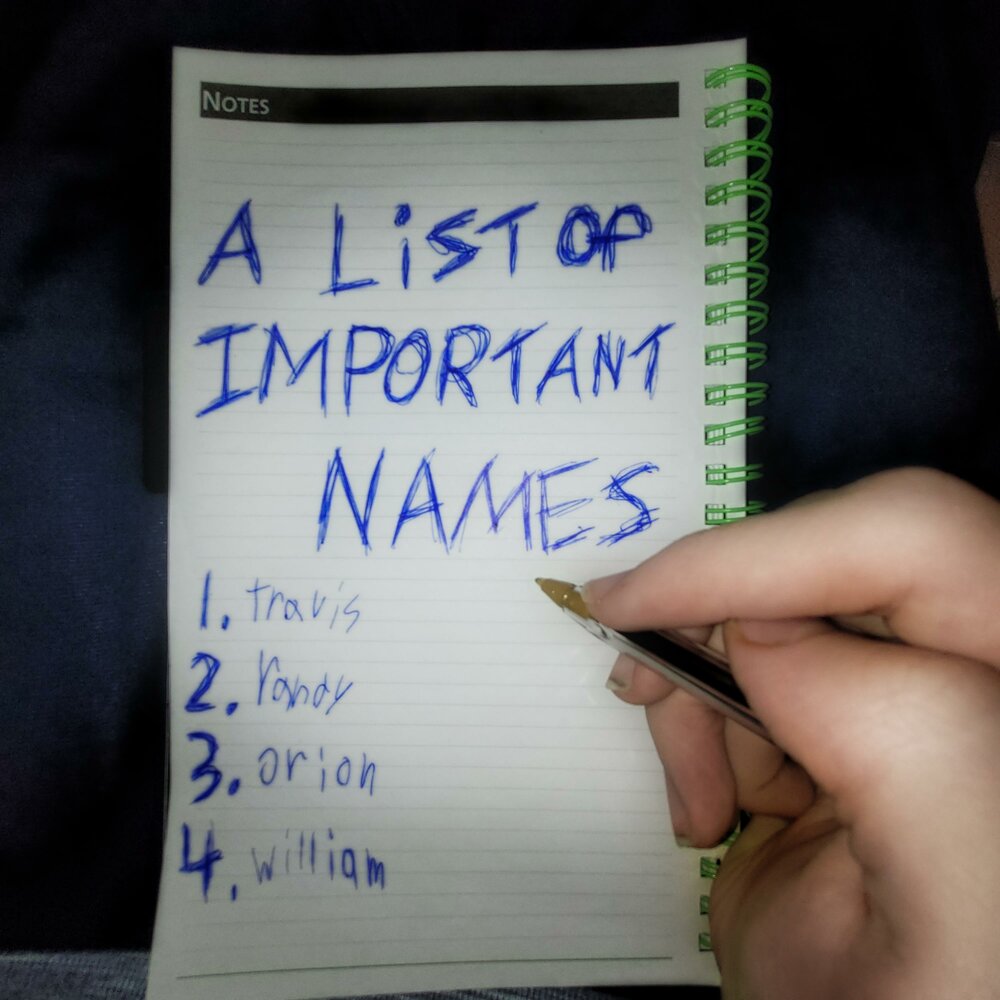 NOTES
A LiST OF
IMPORTANT
NAMES
1. travis
2. randy
3. orion
4. william